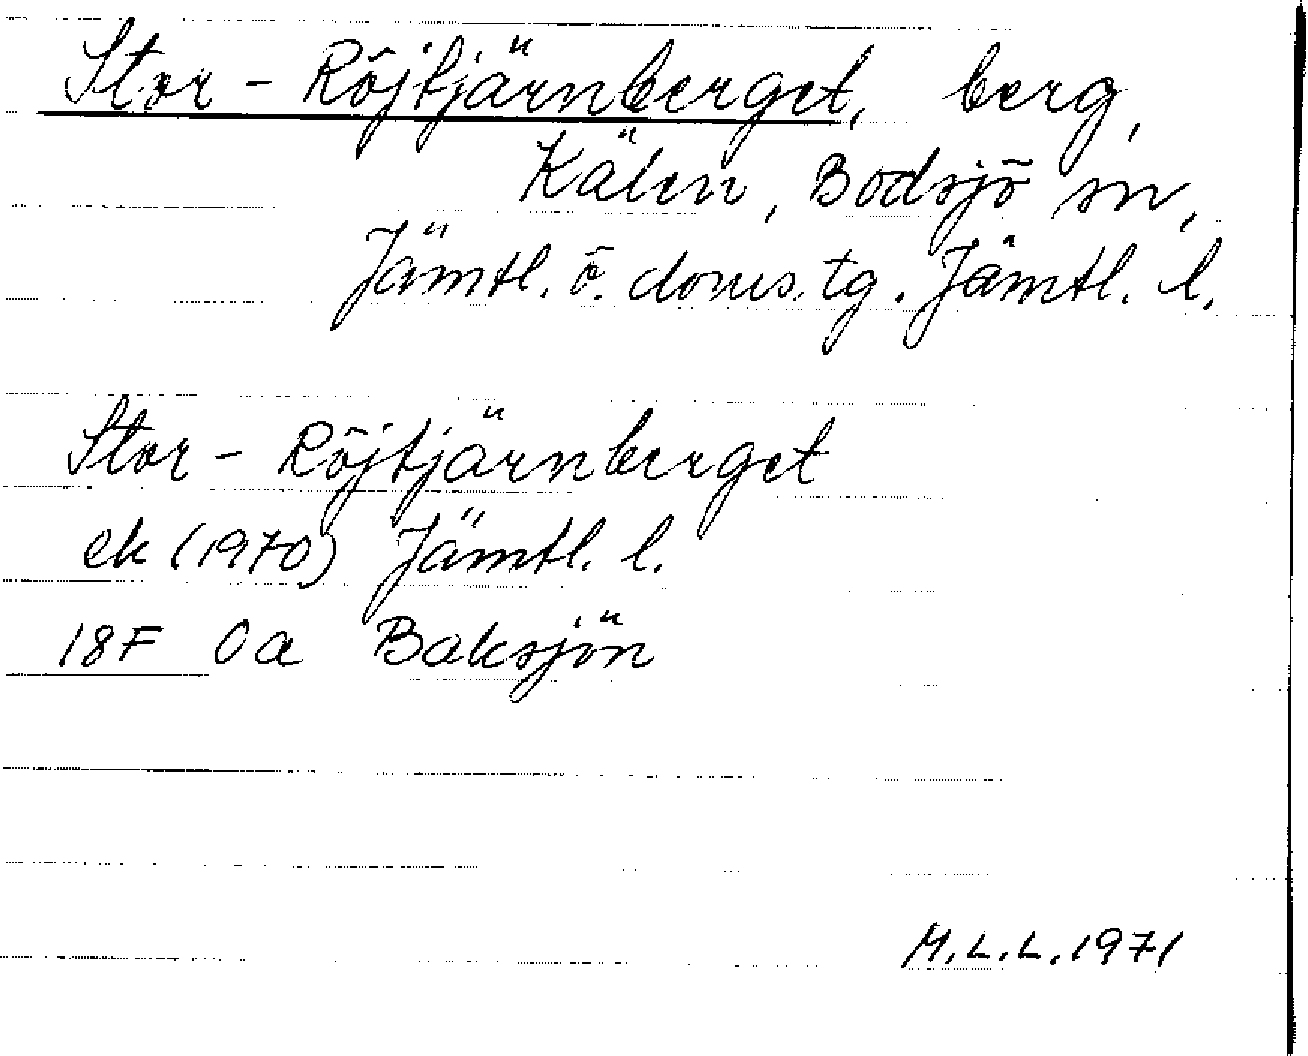 Stor-Röjtjärnberget, berg,
Kälen, Bodsjö sn,
Jämtl. ö. doms. tg. Jämtl. l.
Stor-Röjtjärnberget
ek (1970) Jämtl. l.
18F 0a Baksjön
M.L.L. 1971